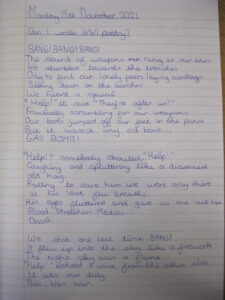 Monday 15th November 2021
Can I write WW1 poetry?
BANG! BANG! BANG!
The sound of weapons rang in our ears
We stumbled towards the trenches
Only to find our lonely peers laying
Sitting down on the benches
We heard a squeal
"Help!" it said "They're after us!"
Frantically scrambling for our weapons
Our boots jumped off our feet in the panic
But it wasn't any old bomb...
GAS BOMB!
"Help!" somebody shouted "Help!"
Coughing and spluttering like a diseased
old hag
Racing to save him we were only there
at his last few breaths
His eyes fluttered and gave us one last
Blood. Stretchers. Medics...
Death.
We shot one last time. BANG!
It flew up into the sky like a firework
The night sky was a flame
"Help" echoed a voice from the other side...
It was our duty
This. Was. War.